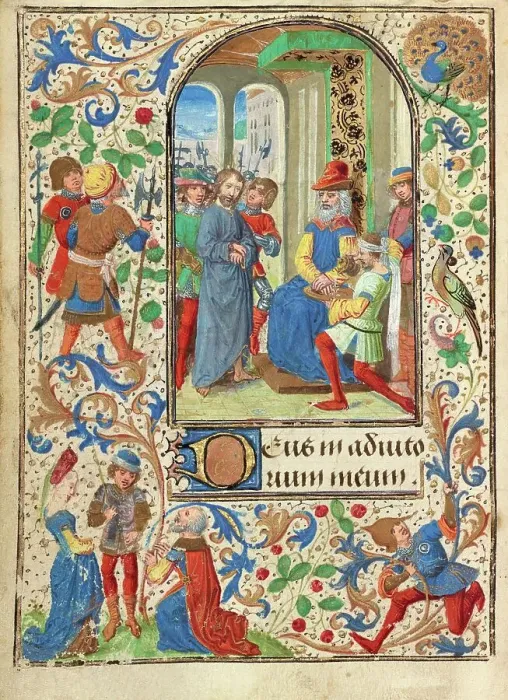 Deus in adiuto
rium meum.